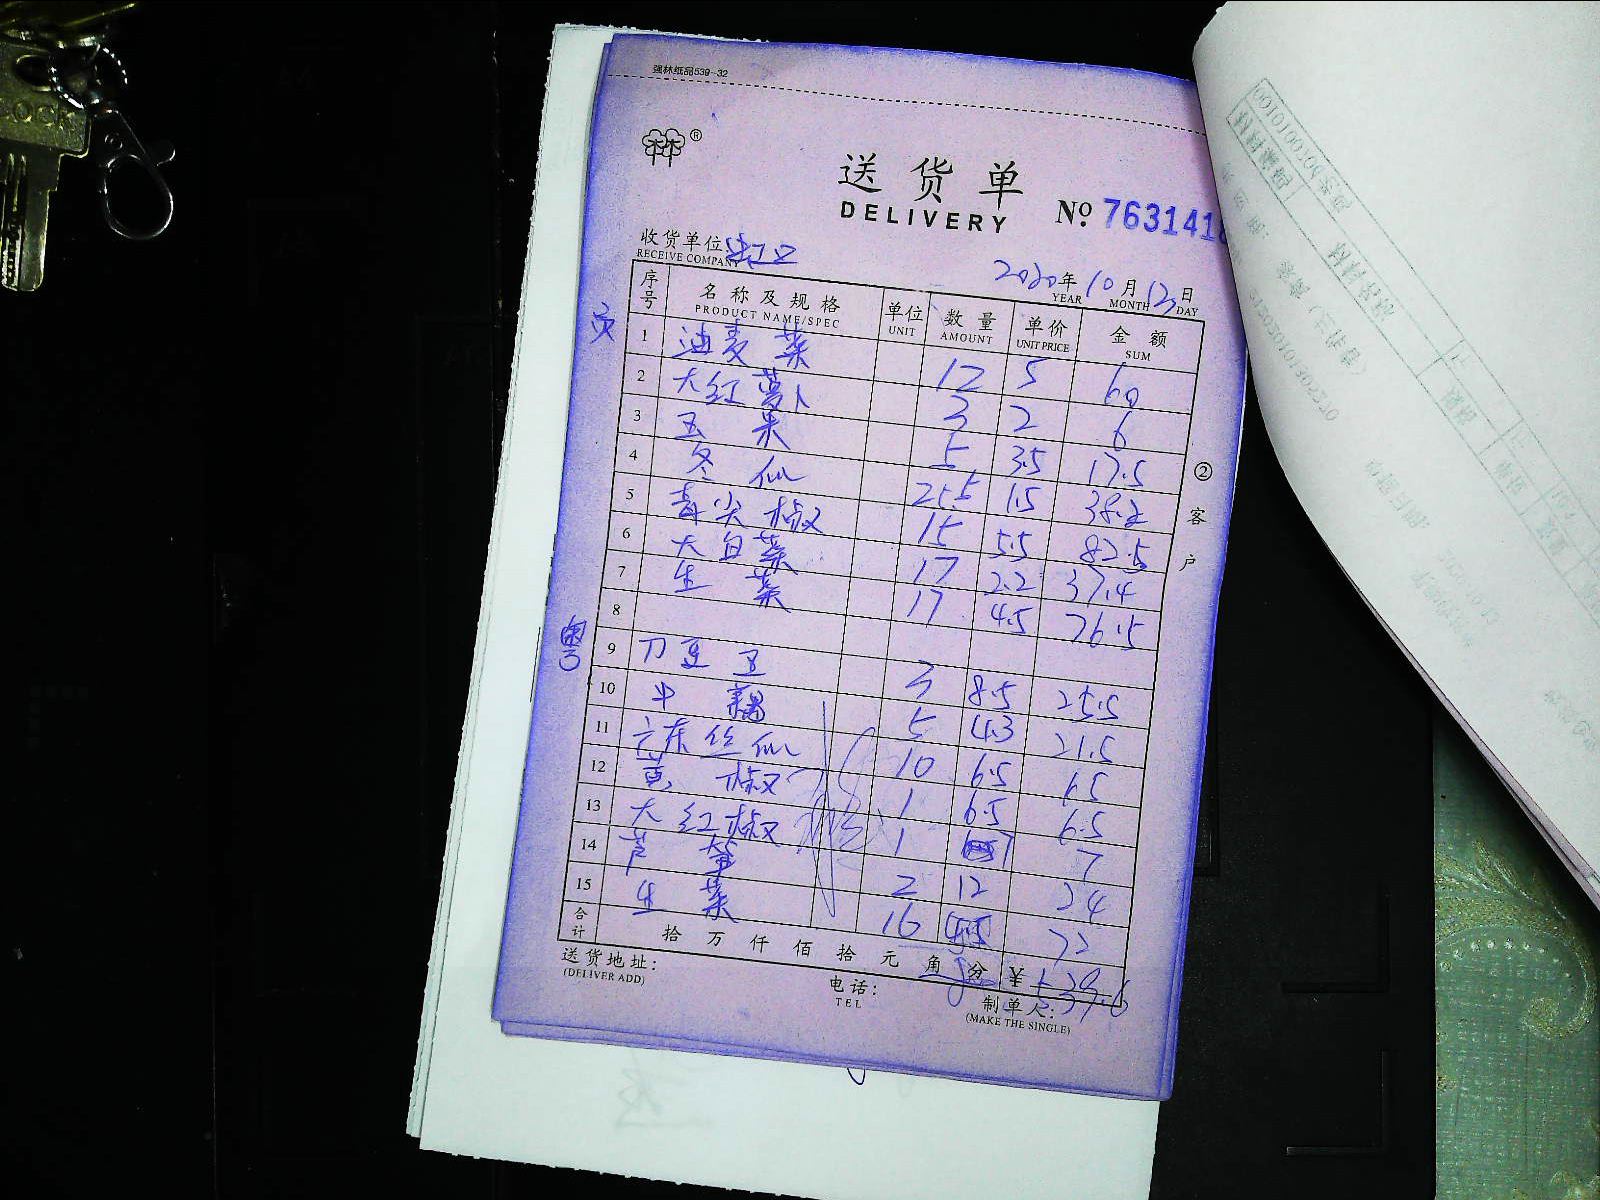 强林纸品539-32
®
送货单
DELIVERY № 7631418
收货单位:
RECEIVE COMPANY
2020年10月13日
YEAR MONTH DAY
序号 名称及规格 单位 数量 单价 金额
PRODUCT NAME/SPEC UNIT AMOUNT UNIT PRICE SUM
1 油麦菜 12 5 60
2 大红萝卜 3 2 6
3 5 3.5 17.5
4 冬 25.5 1.5 38.2
5 青尖椒 15 5.5 82.5
6 大白菜 17 2.2 37.4
7 生菜 17 4.5 76.5
8
9 刀豆 3 8.5 25.5
10 中藕 5 4.3 21.5
11 丝 10 6.5 65
12 黄椒 1 6.5 6.5
13 大红椒 1 7 7
14 芦笋 2 12 24
15 生菜 16 4.5 72
合计 拾 万 仟 佰 拾 元 角 分 ¥ 539.6
送货地址: 电话: 制单人:
(DELIVER ADD) TEL (MAKE THE SINGLE)
② 客户